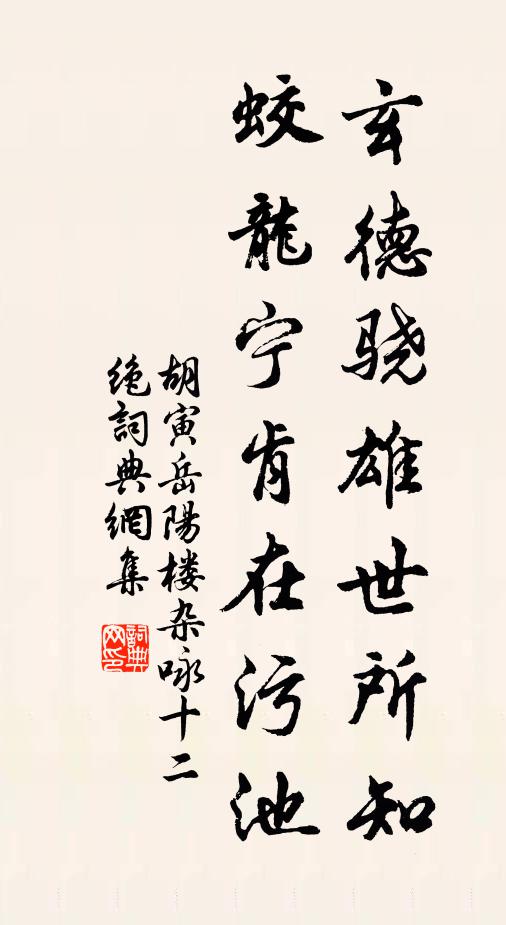 玄德骁雄世所知
蛟龍宁肯在污池
胡寅岳陽楼杂咏十二
绝詞典網集
詞典
网印